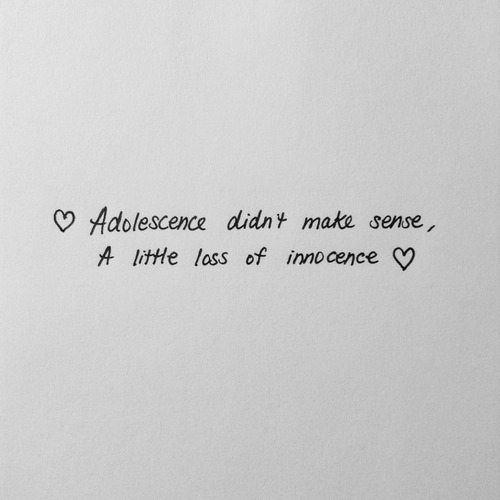 ♡ Adolescence didn't make sense,
A little loss of innocence ♡